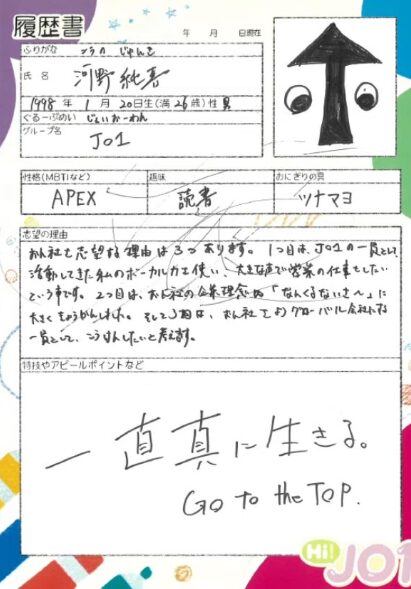 履歴書
年 月 日現在
ふりがな こうの じゅんき
氏名 河野純喜
1998年 1月 20日生(満26歳)性男
ぐるーぷめい じぇいおーわん
グループ名 JO1
性格(MBTIなど) 趣味 おにぎりの具
APEX 読書 ツナマヨ
志望の理由
おん社を志望する理由は3つあります。1つ目は、JO1の一員として
活動してきた私のボーカル力を使い、大きな声で営業の仕事をしたい
という事です。2つ目は、おん社の企業理念の「なんくるないさ〜」に
大きくきょうかんしました。そして3つ目は、おん社をよりグローバル会社にする
一員として、こうけんしたいと考えます。
特技やアピールポイントなど
一直真に生きる。
Go to the TOP.
Hi!
JO1